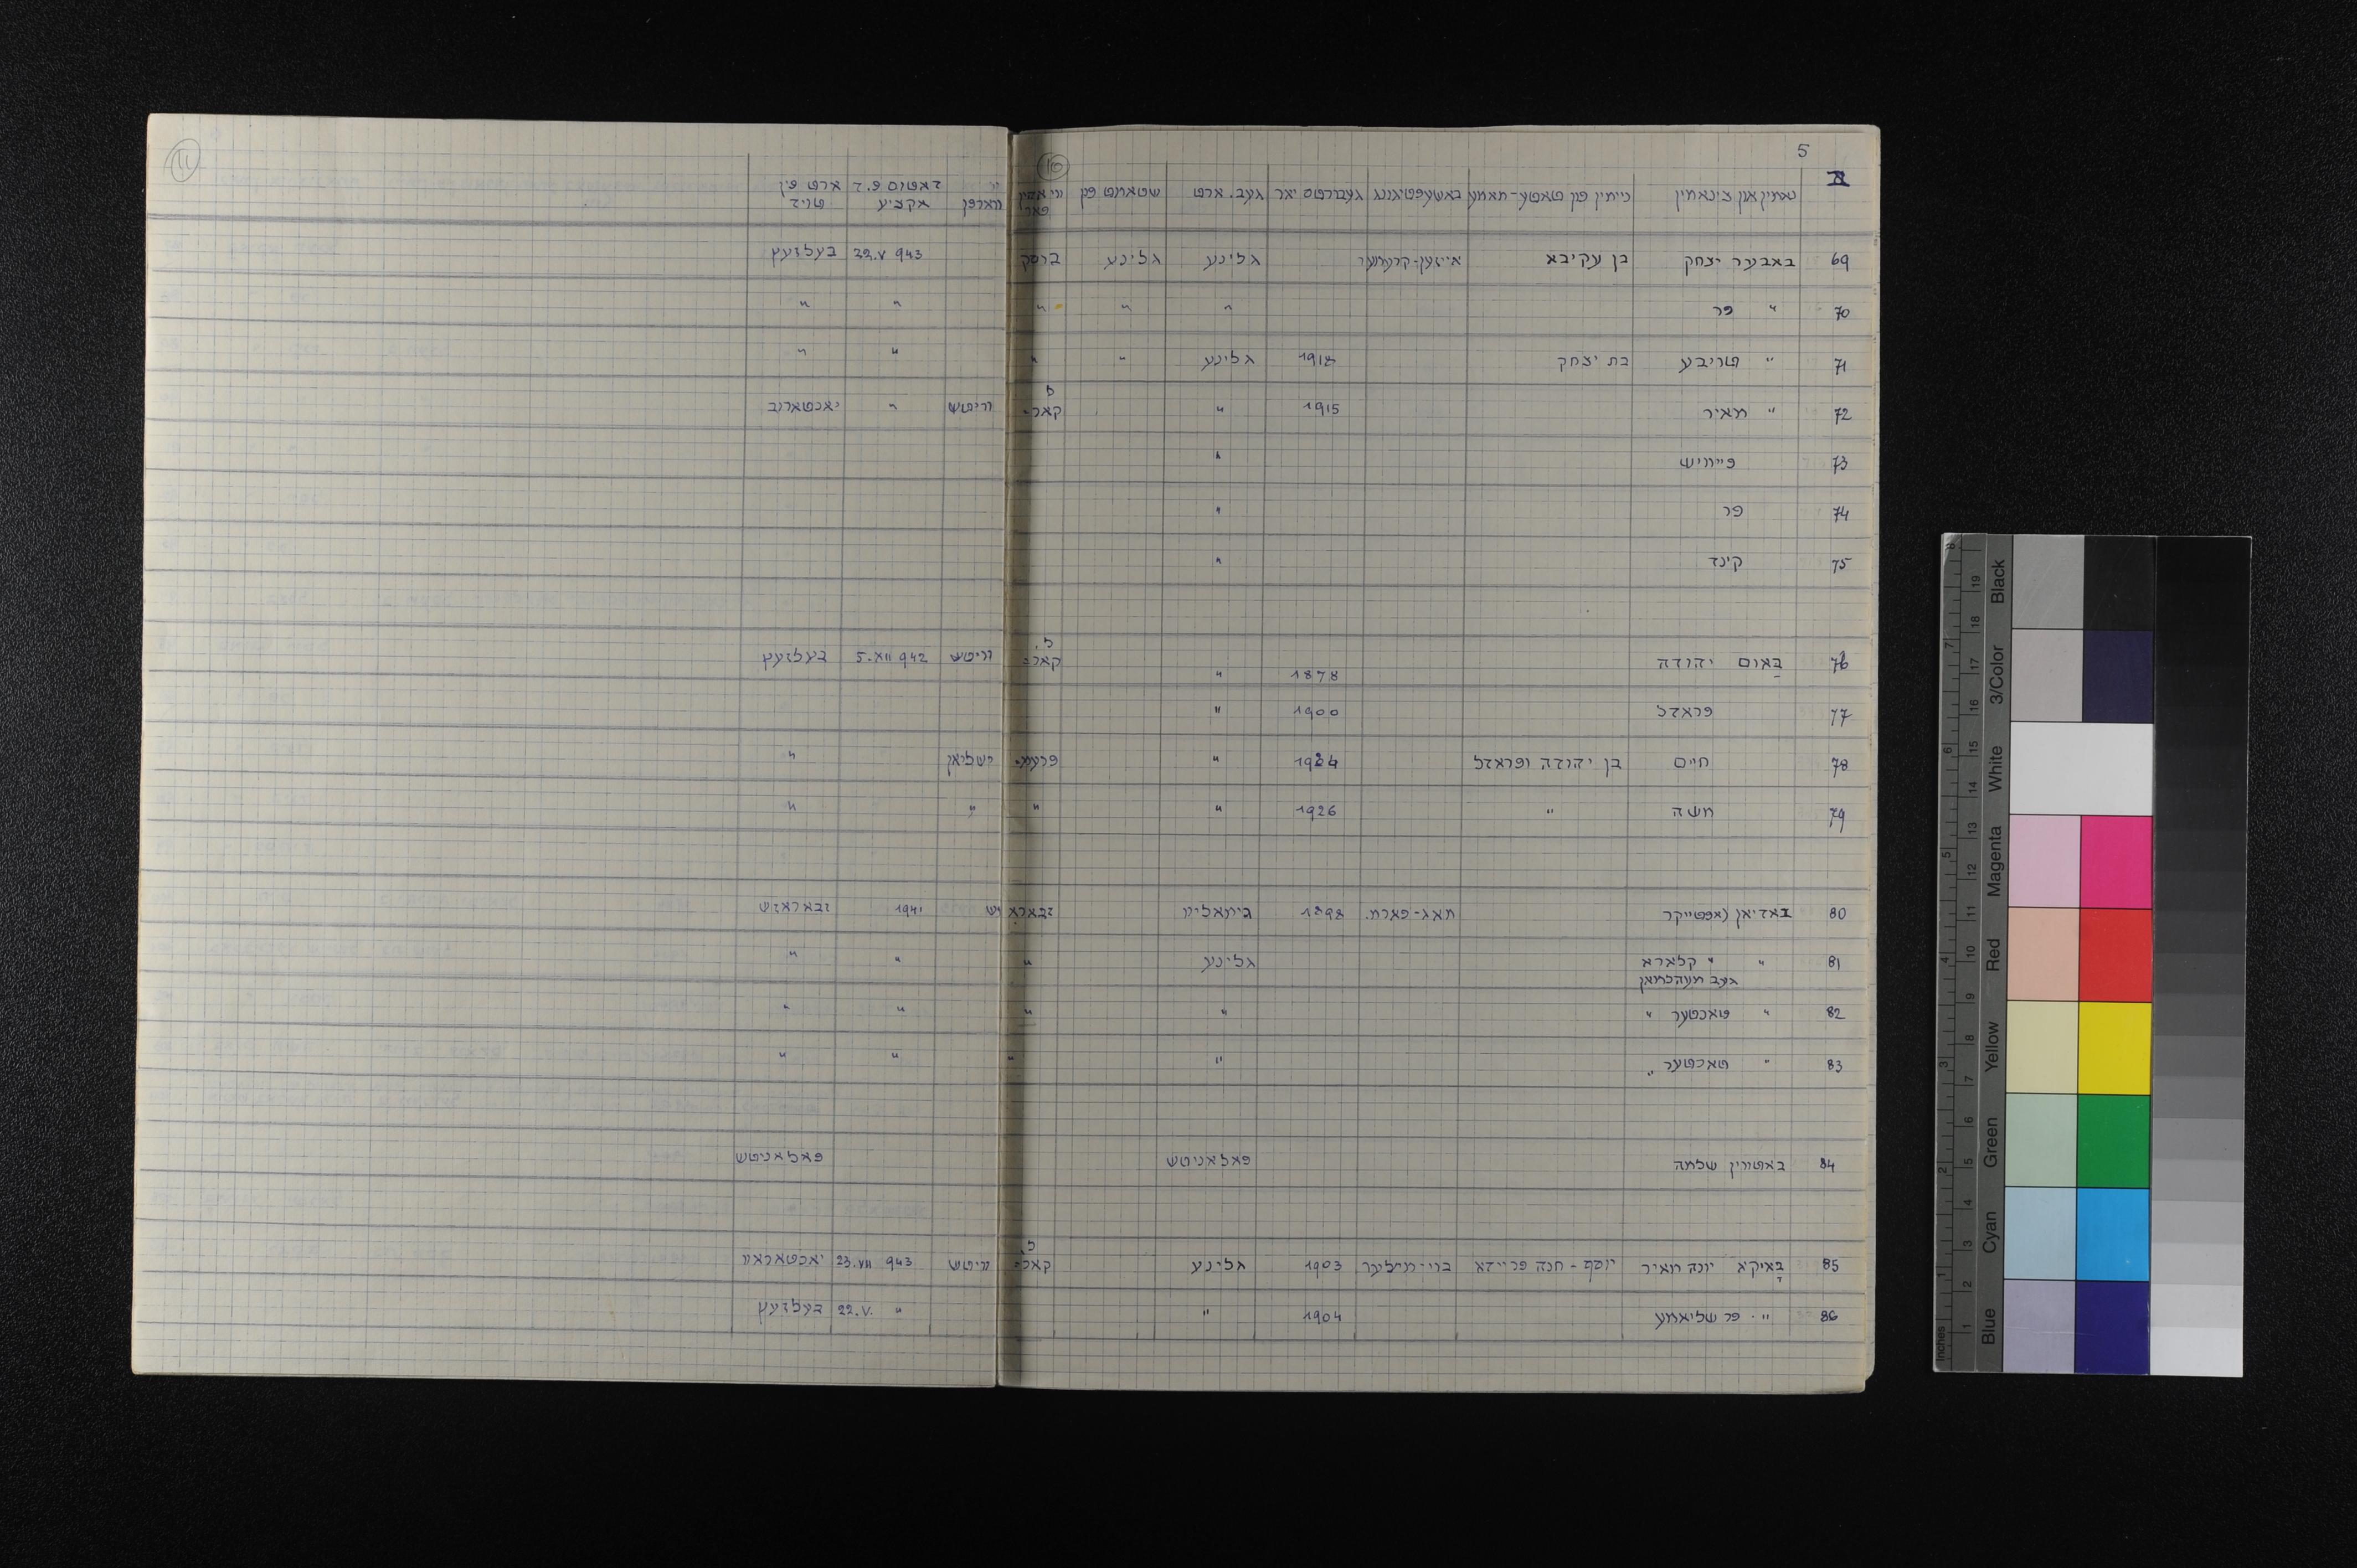 5
10
11
נאמין און צונאמין נייחין פון טאטע-מאמע באשעפטיגונג געבורטס יאר געב. ארט שטאמט פון דאטום פ.ד. ארט פ.ן
ווארפן אקציע טויט
69 באבער יצחק בן עקיבא אייזן-קרעמער גלינע גלינע ברסק 22.V 943 בעלזעץ
70 " פר " " " " "
71 " טריבע בת יצחק 1918 גלינע " " " "
72 " מאיר 1915 " קארפ- וויטש " יאכטארוב
73 פייוויש "
74 פר "
75 קינד "
76 באום יהודה 1878 " קארפ- וויטש 5.XII 942 בעלזעץ
77 פראדל 1900 "
78 חיים בן יהודה ופראדל 1924 " פרעמי- שליאן "
79 משה " 1926 " " " "
80 באדיאן (אפטייקר מאג-פארמ. 1898 זבאראזש 1941 זבאראזש
81 " " קלארא גלינע " " "
געב מעהלמאן
82 " טאכטער " " " " "
83 " טאכטער " " " " "
84 באטווין שלמה פאלאניטש פאלאניטש
85 באיקא יונה מאיר יוסף - חנה פריידא בוי-מיילער 1903 גלינע קארפ- וויטש 23.VII 943 יאכטאראוו
86 " . פר שליאמע 1904 " 22.V. " בעלזעץ
inches 1 2 3 4 5 6 7 8
1 2 3 4 5 6 7 8 9 10 11 12 13 14 15 16 17 18 19
Blue Cyan Green Yellow Red Magenta White 3/Color Black